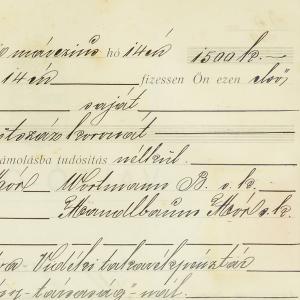 márczius hó 14én 1500 k.–
14én fizessen Ön ezen első
saját
ötszáz koronát
számolásba tudósítás nélkül.
Mór Wortmann B. s. k.
Mandlbaum Mór s. k.
Vidéki takarékpénztár
társaság"-nál.